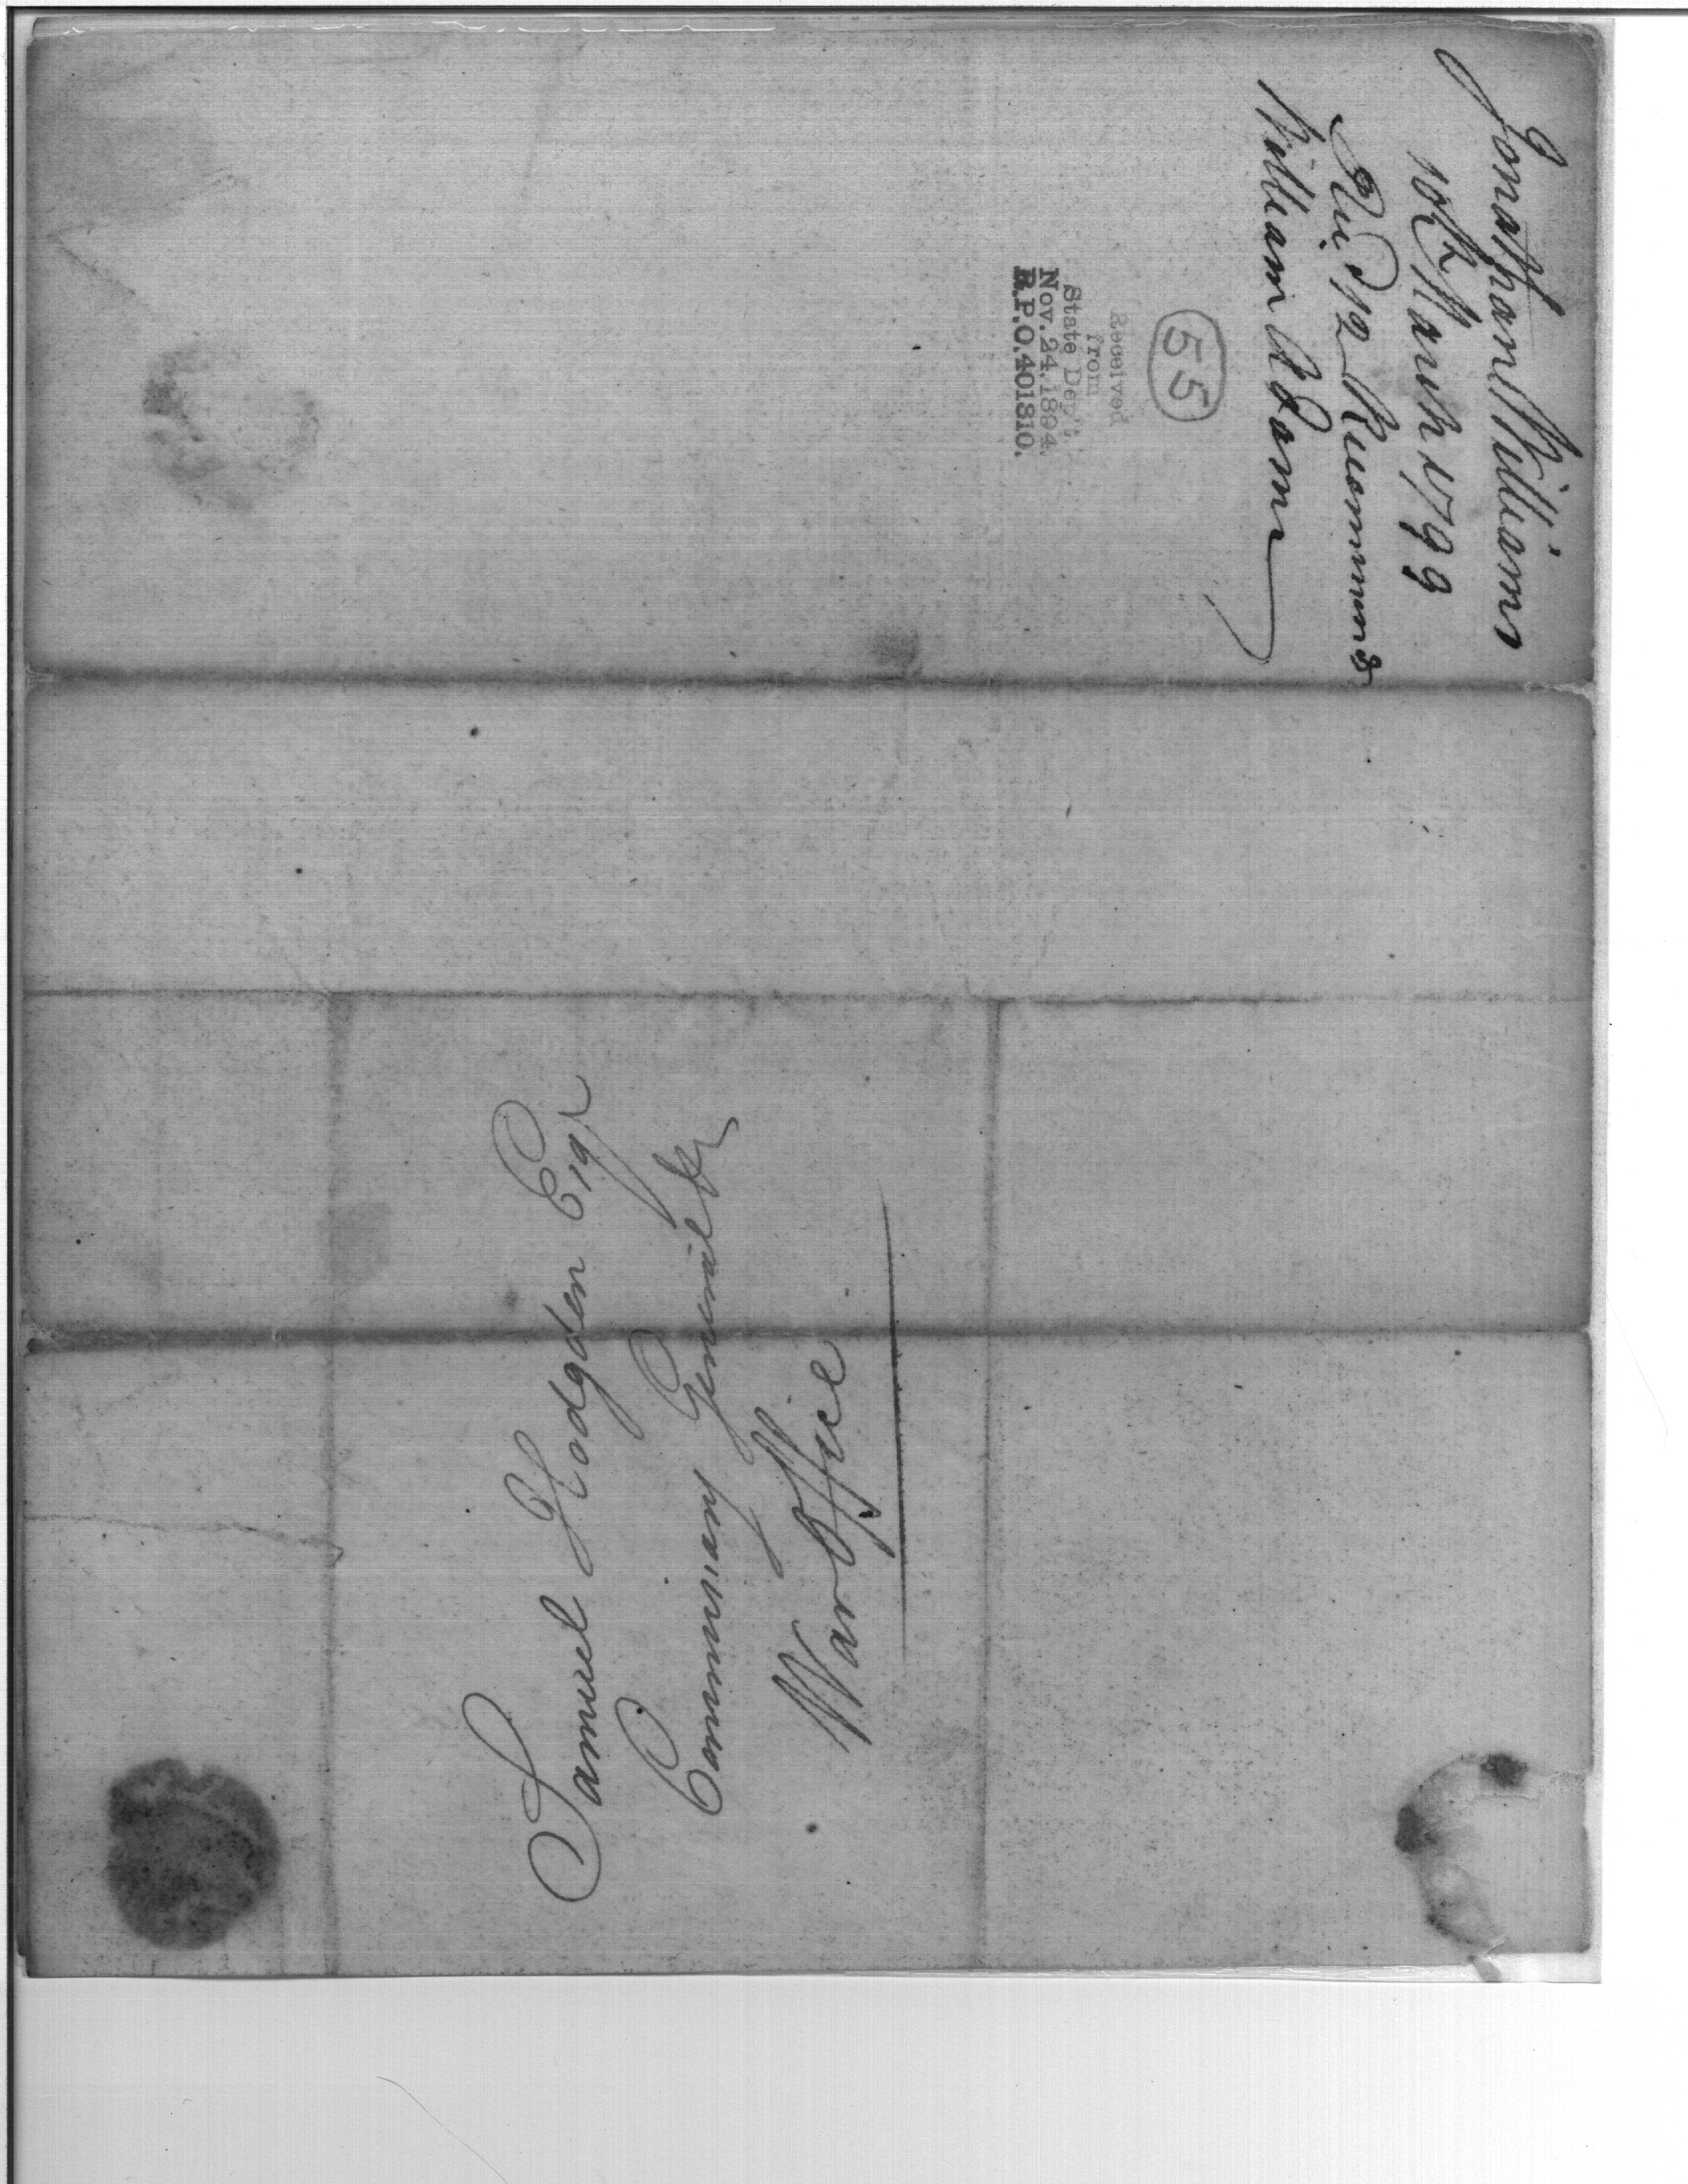 Jonathan Williams
10th March 1799
Rec'd 12 Recommends
William Adams
55
Received
from
State Dep't.
Nov. 24, 1894.
R.P.O. 401310.
Samuel Hodgden Esqr
Commissary General &c
War Office